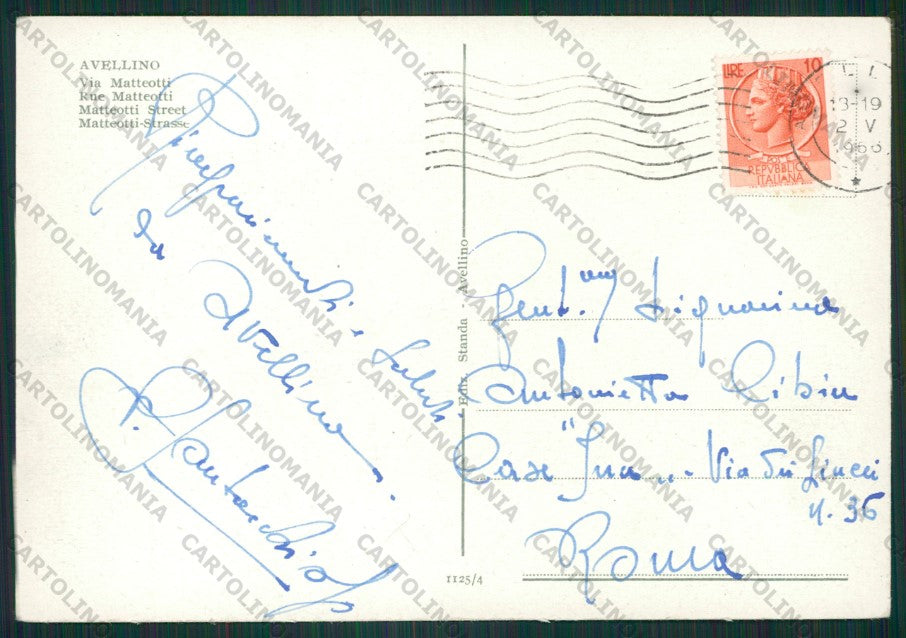 AVELLINO
Via Matteotti
Rue Matteotti
Matteotti Street
Matteotti-Strasse
saluti
da Avellino.
Ediz. Standa - Avellino
1125/4
LIRE 10
REPVBBLICA
ITALIANA
18-19
2 V
Gent.ma Signorina
Antonietta
Case "Ina" Via dei
N. 36
Roma
CARTOLINOMANIA